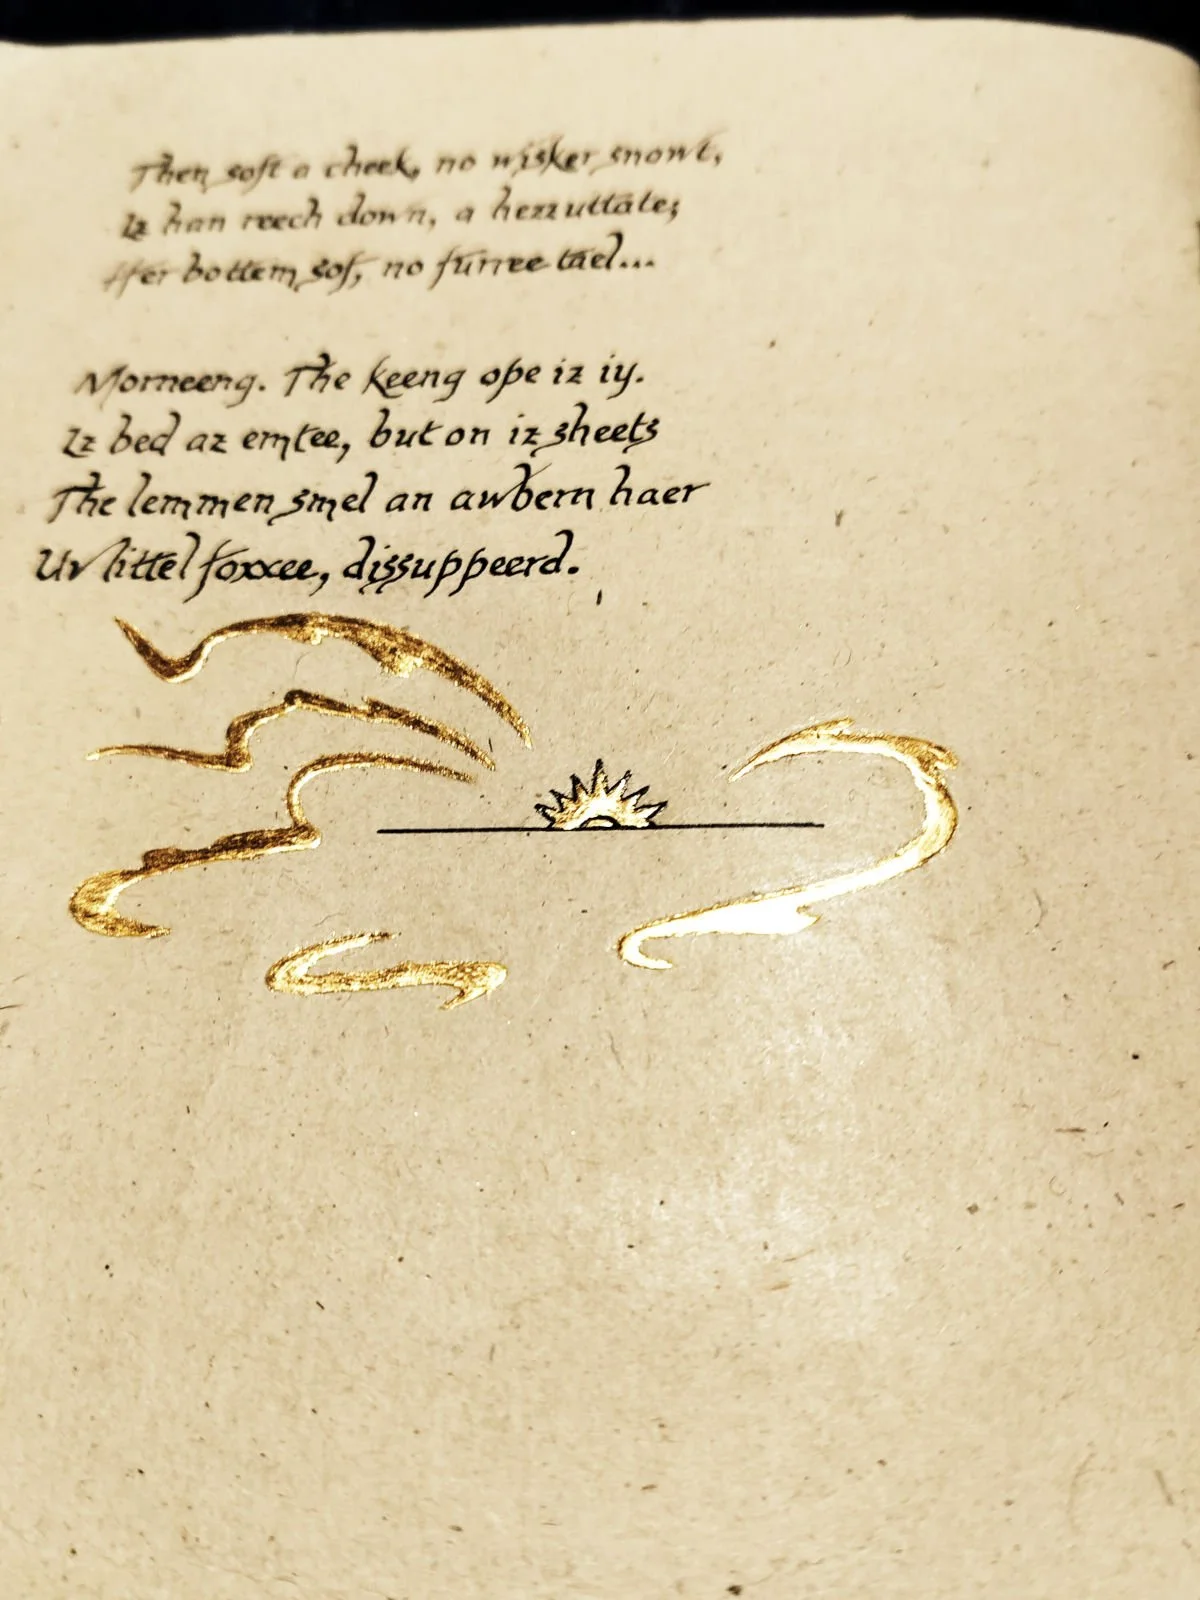 Then soft a cheek, no wisker snowt,
Iz han reech down, a hezzuttate;
Her bottem sof, no furree tael...
Morneeng. The keeng ope iz iy.
Iz bed az emtee, but on iz sheets
The lemmen smel an awbern haer
Uv littel foxxee, dissuppeerd.